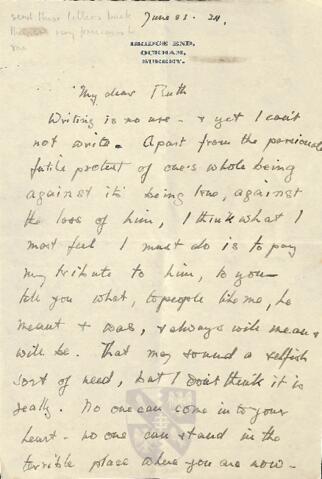 send these letters back
they are very precious to
me
June 23. 24.
BRIDGE END,
OCKHAM,
SURREY.
My dear Ruth
Writing is no use - & yet I can't
not write. Apart from the passionate
futile protest of one's whole being
against it's being true, against
the loss of him, I think what I
most feel I must do is to pay
my tribute to him, to you -
tell you what, to people like me, he
meant & was, & always will mean &
will be. That may sound a selfish
sort of need, but I don't think it is
really. No one can come in to your
heart - no one can stand in the
terrible place where you are now -